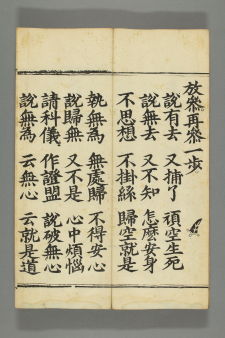 放參再參一步
說有去 又捕了 頑空生死
說無去 又不知 怎麼安身
不思想 不掛絲 歸空就是
執無為 無處歸 不得安心
說歸無 又不是 心中煩惱
請科儀 作證盟 說破無心
說無為 云無心 云就是道